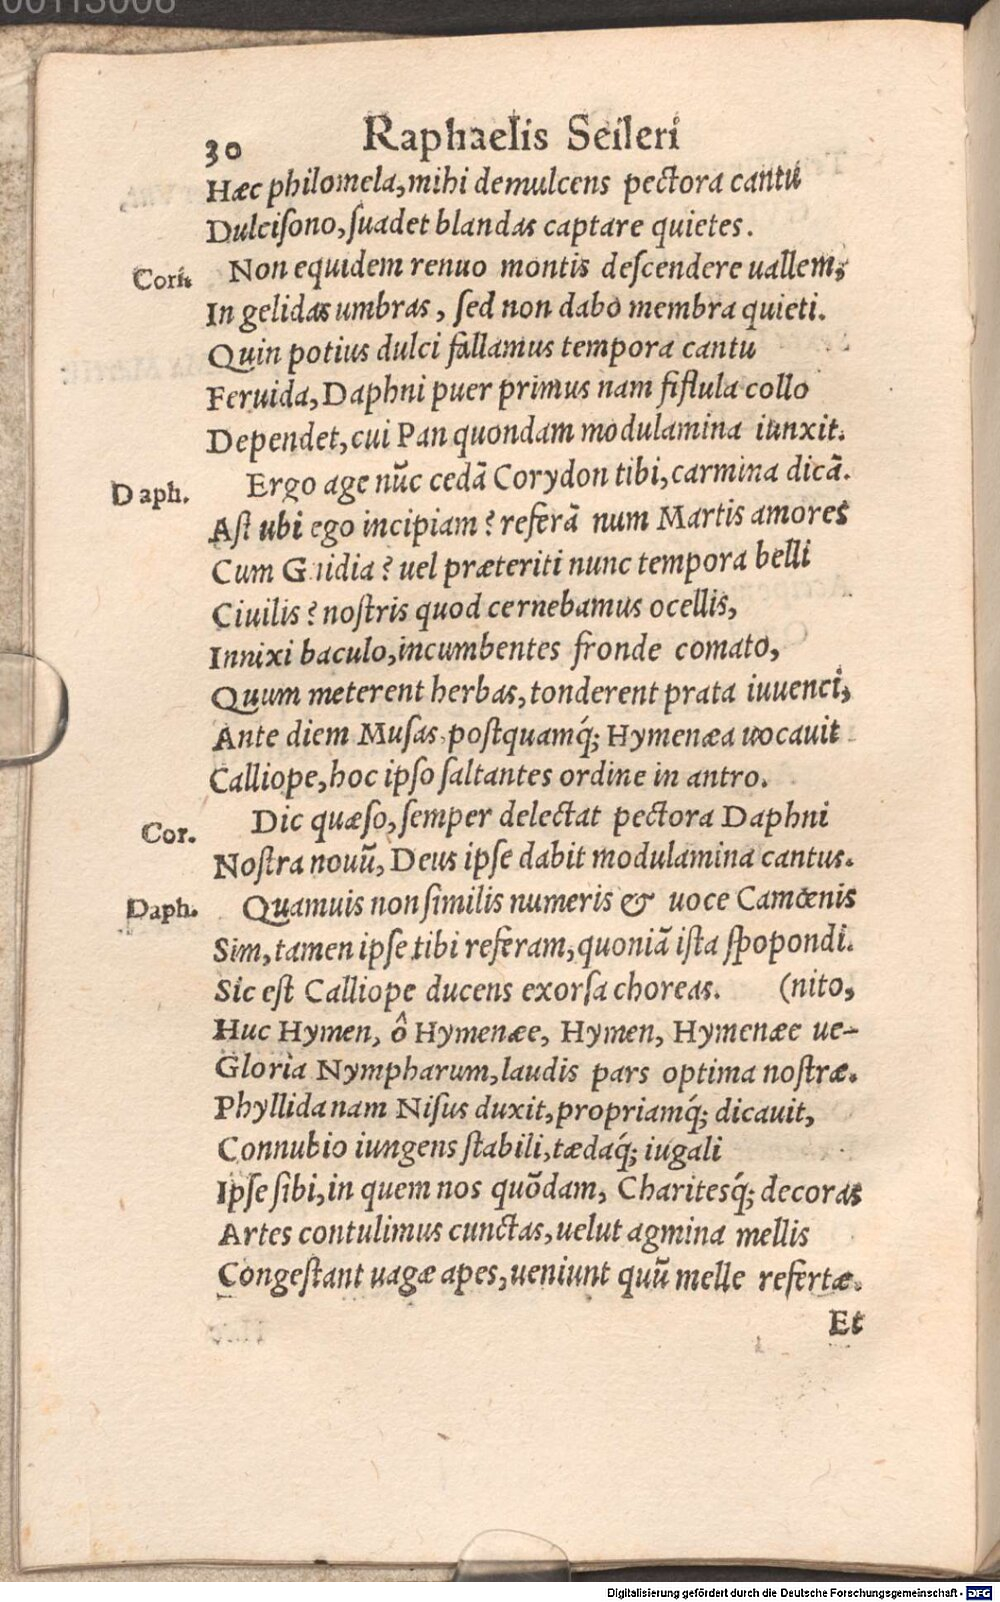 00113006
30 Raphaelis Seileri
Hæc philomela, mihi demulcens pectora cantu
Dulcisono, suadet blandas captare quietes.
Cori. Non equidem renuo montis descendere uallem,
In gelidas umbras, sed non dabo membra quieti.
Quin potius dulci fallamus tempora cantu
Feruida, Daphni puer primus nam fistula collo
Dependet, cui Pan quondam modulamina iunxit.
Daph. Ergo age nūc cedā Corydon tibi, carmina dicā.
Ast ubi ego incipiam? referā num Martis amores
Cum Gnidia? uel præteriti nunc tempora belli
Ciuilis? nostris quod cernebamus ocellis,
Innixi baculo, incumbentes fronde comato,
Quum meterent herbas, tonderent prata iuuenci,
Ante diem Musas postquamq́; Hymenæa uocauit
Calliope, hoc ipso saltantes ordine in antro.
Cor. Dic quæso, semper delectat pectora Daphni
Nostra nouū, Deus ipse dabit modulamina cantus.
Daph. Quamuis non similis numeris & uoce Camœnis
Sim, tamen ipse tibi referam, quoniā ista spopondi.
Sic est Calliope ducens exorsa choreas. (nito,
Huc Hymen, ô Hymenæe, Hymen, Hymenæe ue-
Gloria Nympharum, laudis pars optima nostræ.
Phyllida nam Nisus duxit, propriamq́; dicauit,
Connubio iungens stabili, tædaq́; iugali
Ipse sibi, in quem nos quōdam, Charitesq́; decoras
Artes contulimus cunctas, uelut agmina mellis
Congestant uagæ apes, ueniunt quū melle refertæ.
Et
Digitalisierung gefördert durch die Deutsche Forschungsgemeinschaft - DFG